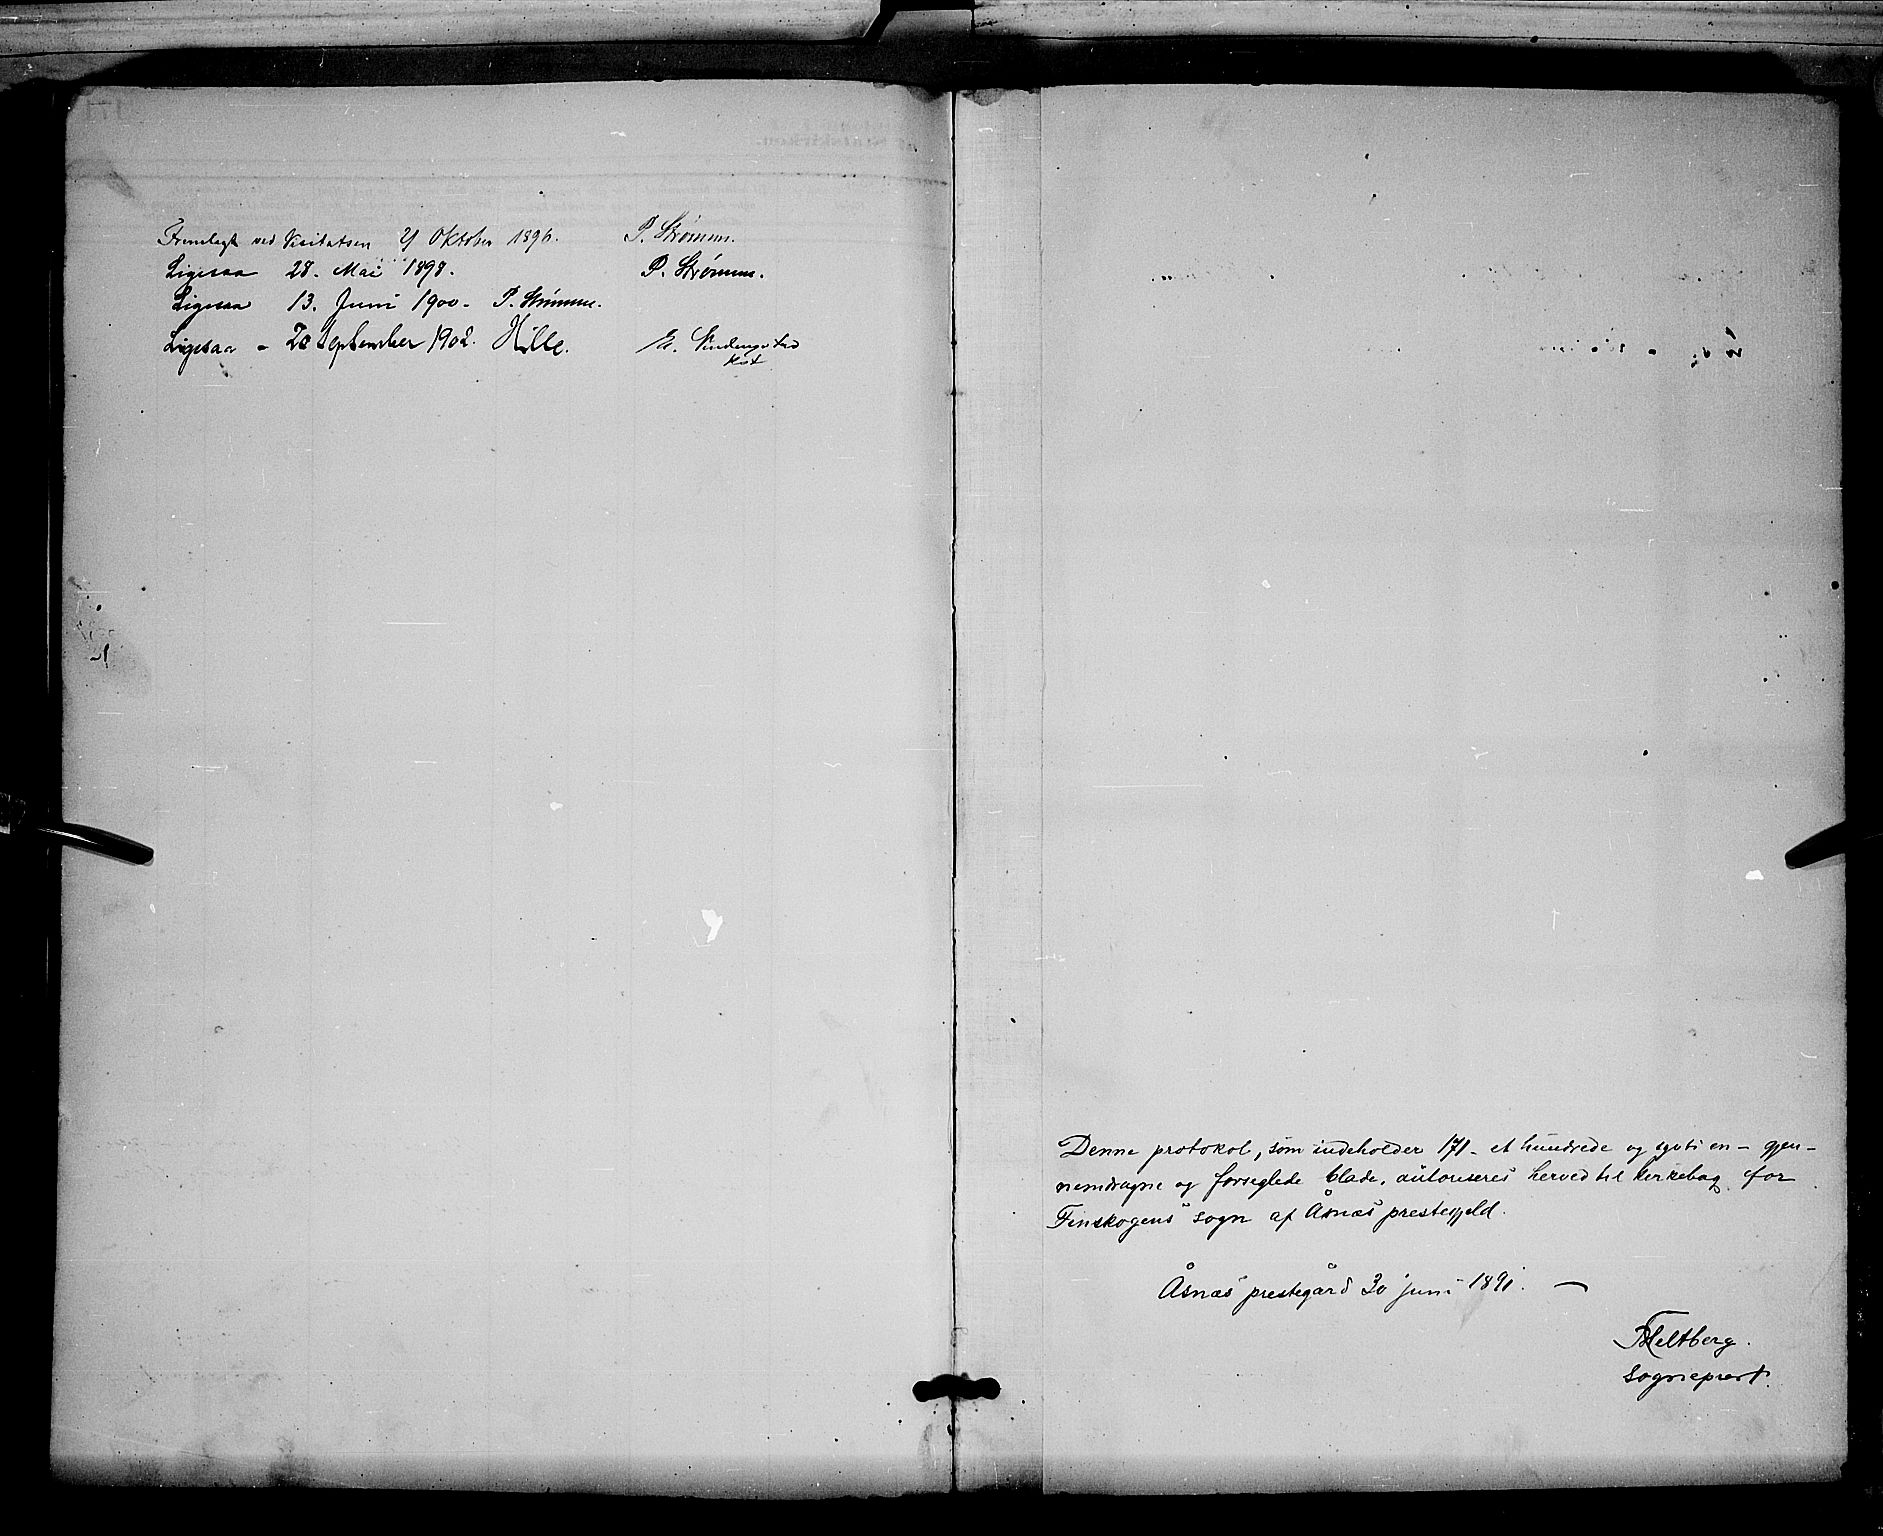 Fremlagt ved Visitatsen 21 Oktober 1896. P. Strømme.
Ligesaa 28. Mai 1898. P. Strømme.
Ligesaa 13. Juni 1900 - P. Strømme.
Ligesaa - 20 September 1902. Hille.
Denne protokol, som indeholder 171 - et hundrede og sytti en - gjen-
nemdragne og forseglede blade, autoriseres herved til kirkebog for
Finskogens sogn af Åsnæs prestegjeld.
Åsnæs prestegård 30 juni 1891. -
Heltberg.
Sogneprest.